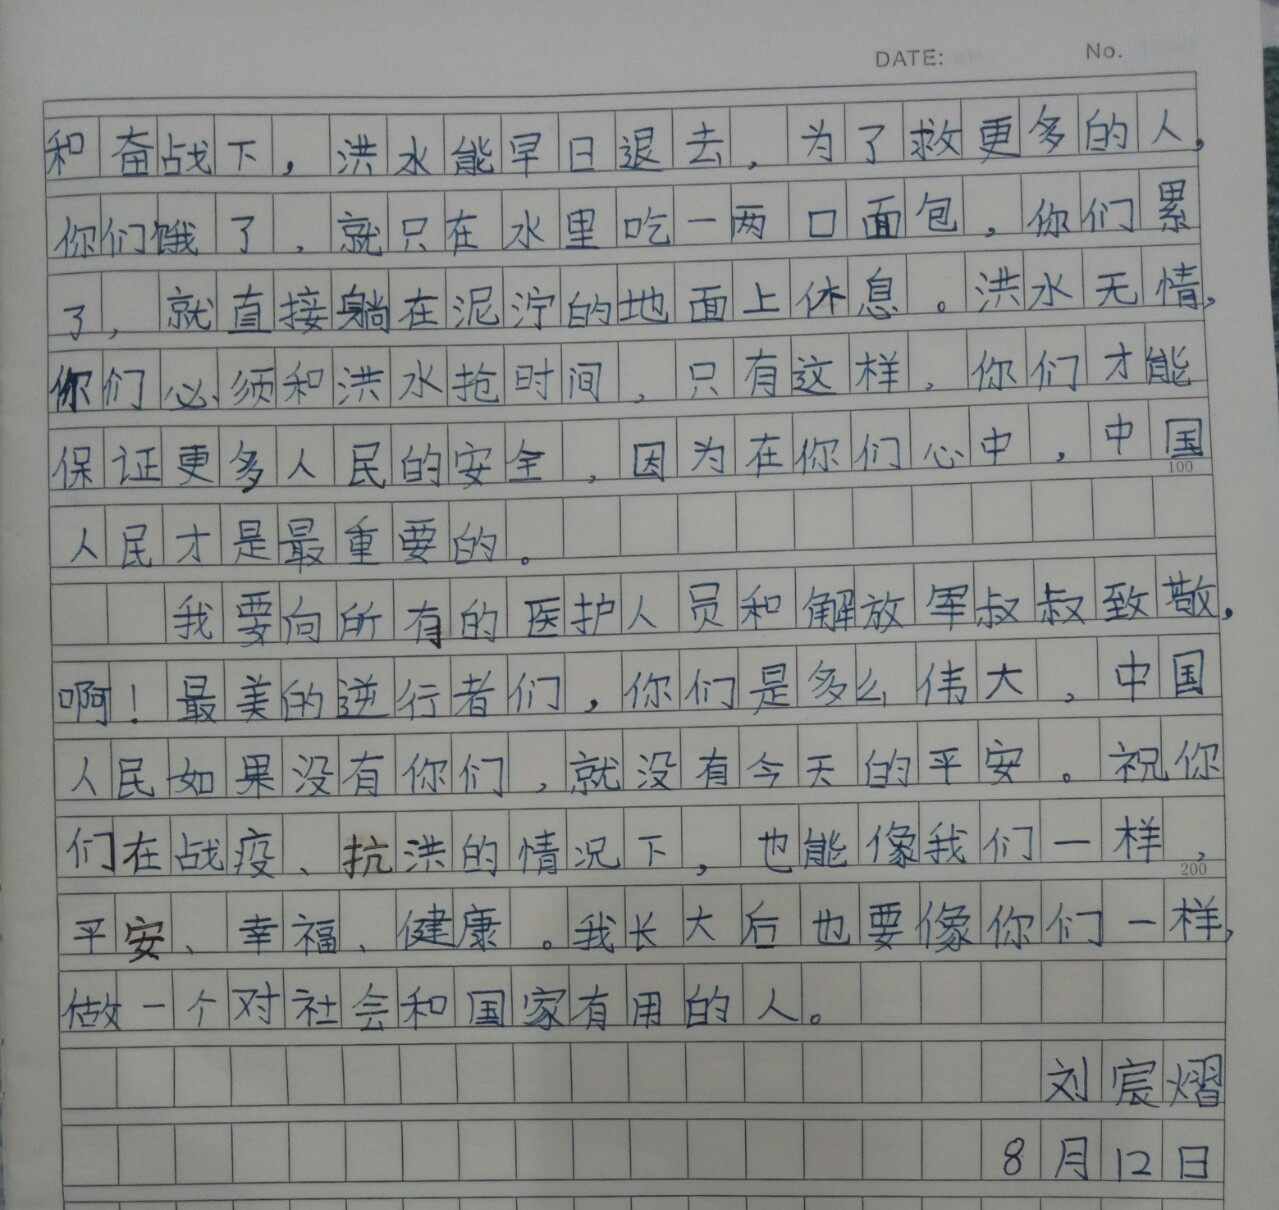 DATE: No.
和奋战下，洪水能早日退去，为了救更多的人，
你们饿了，就只在水里吃一两口面包，你们累
了，就直接躺在泥泞的地面上休息。洪水无情，
你们必须和洪水抢时间，只有这样，你们才能
保证更多人民的安全，因为在你们心中，中国
100
人民才是最重要的。
我要向所有的医护人员和解放军叔叔致敬，
啊！最美的逆行者们，你们是多么伟大，中国
人民如果没有你们，就没有今天的平安。祝你
们在战疫、抗洪的情况下，也能像我们一样，
200
平安、幸福、健康。我长大后也要像你们一样，
做一个对社会和国家有用的人。
刘宸熠
8月12日